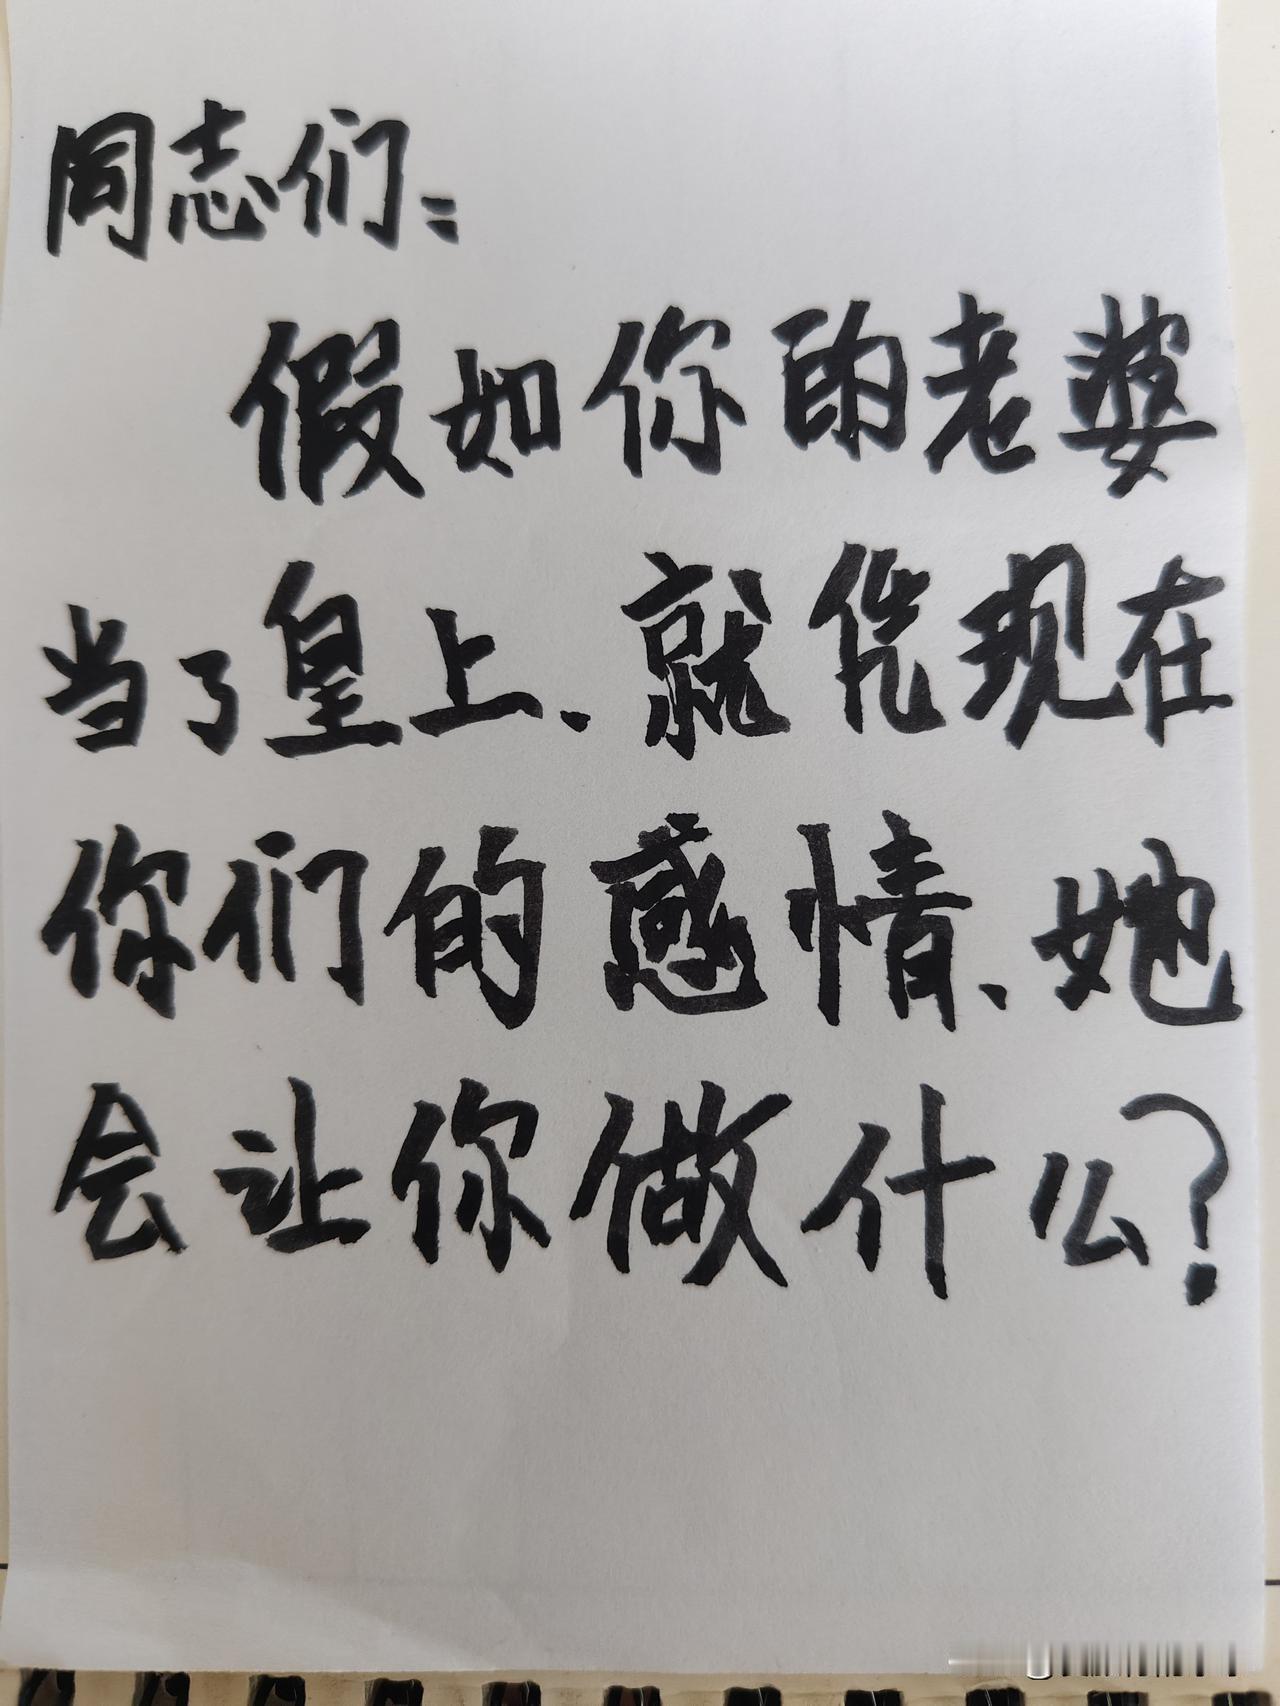 同志们:
假如你的老婆
当了皇上、就凭现在
你们的感情、她
会让你做什么?